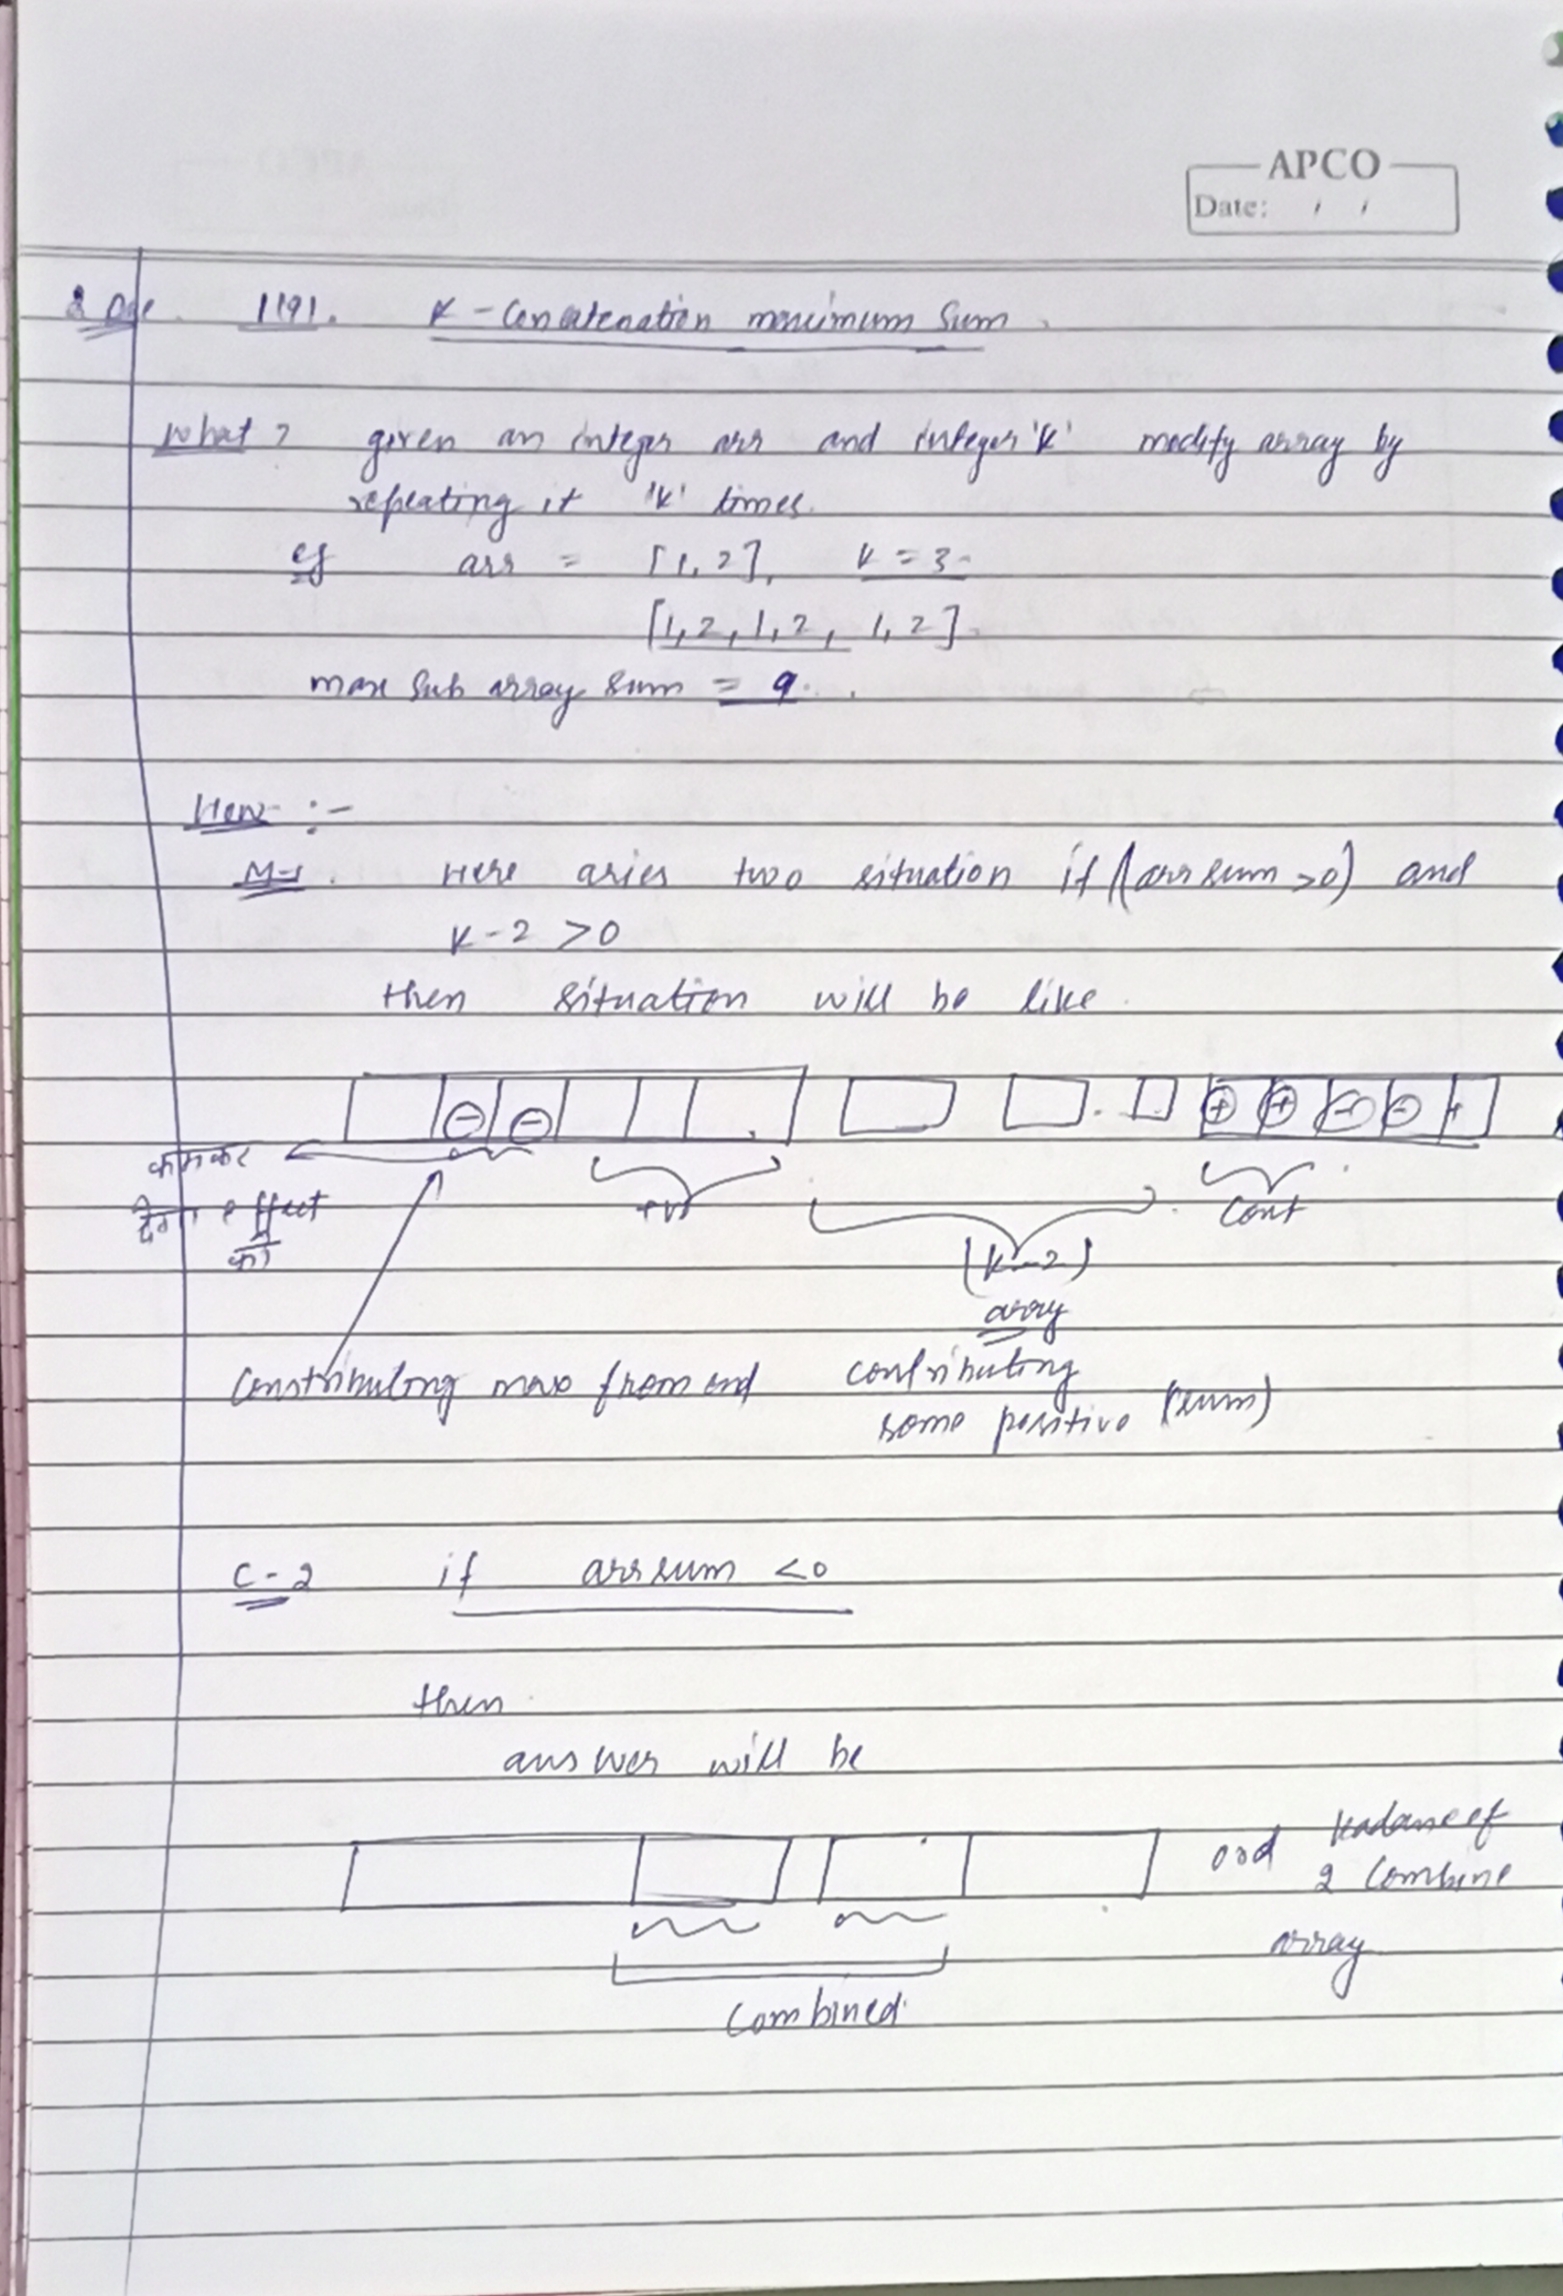 APCO
Date: / /
1191. K - Concatenation maximum Sum.
What? given an integer arr and integer 'K' modify array by
repeating it 'K' times.
eg arr = [1, 2], K = 3
[1, 2, 1, 2, 1, 2].
max sub array sum = 9.
How :-
M-1. Here aries two situation if (arr sum >0) and
K - 2 > 0
then situation will be like.
⊖ ⊖ ⊕ ⊕ ⊖ ⊖ +
कम कर
देगा effect
को
+ve
cont
(K-2)
array
contributing max from end
contributing
some positive (sum)
C-2 if arr sum <0
then
answer will be
kadane of
2 Combine
array
Combined